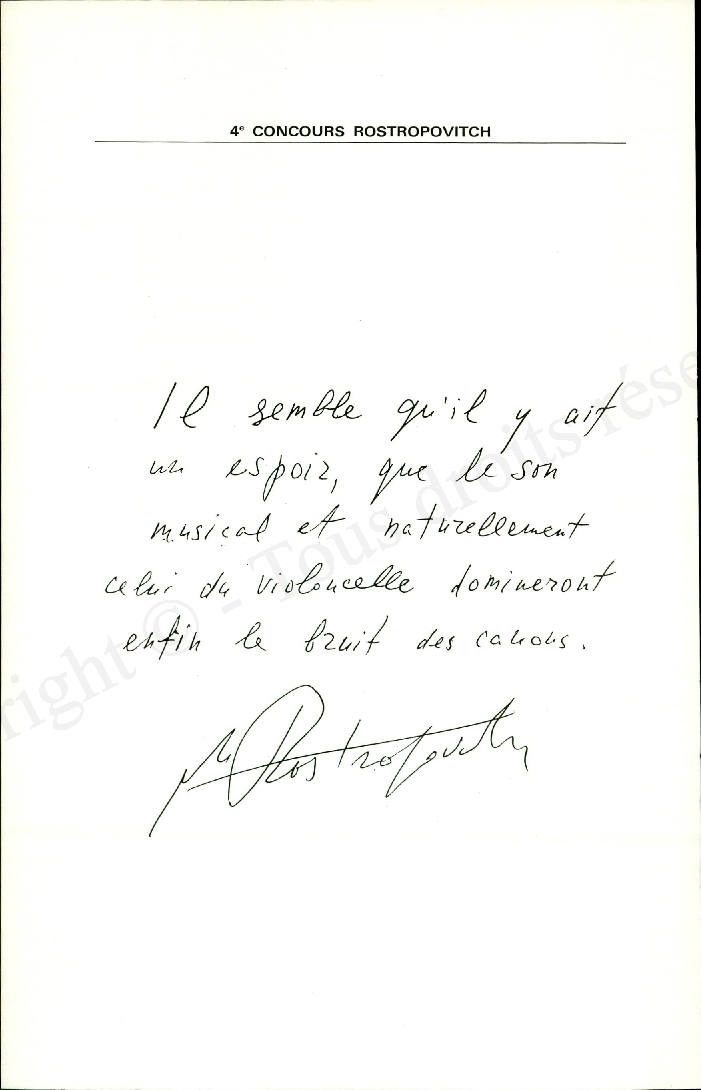 4e CONCOURS ROSTROPOVITCH
Il semble qu'il y ait
un espoir, que le son
musical et naturellement
celui du violoncelle domineront
enfin le bruit des canons.
M Rostropovitch
right © - Tous droits rése